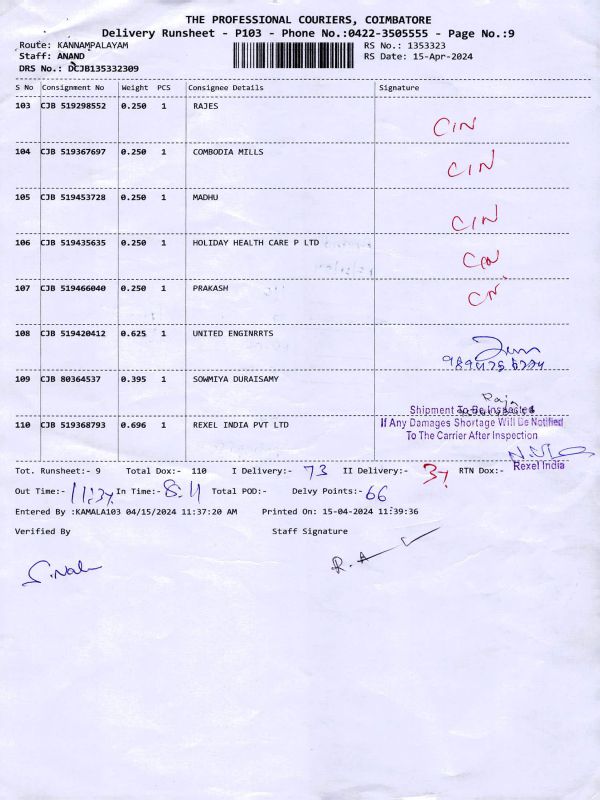 THE PROFESSIONAL COURIERS, COIMBATORE
Delivery Runsheet - P103 - Phone No.:0422-3505555 - Page No.:9
Route: KANNAMPALAYAM RS No.: 1353323
Staff: ANAND RS Date: 15-Apr-2024
DRS No.: DCJB135332309
S No Consignment No Weight PCS Consignee Details Signature
103 CJB 519298552 0.250 1 RAJES
CIN
104 CJB 519367697 0.250 1 COMBODIA MILLS
CIN
105 CJB 519453728 0.250 1 MADHU
CIN
106 CJB 519435635 0.250 1 HOLIDAY HEALTH CARE P LTD
CIN
107 CJB 519466040 0.250 1 PRAKASH
CIN
108 CJB 519420412 0.625 1 UNITED ENGINRRTS
109 CJB 80364537 0.395 1 SOWMIYA DURAISAMY
Raja
Shipment To Be Inspected
110 CJB 519368793 0.696 1 REXEL INDIA PVT LTD If Any Damages Shortage Will Be Notified
To The Carrier After Inspection
Rexel India
Tot. Runsheet:- 9 Total Dox:- 110 I Delivery:- 73 II Delivery:- 37 RTN Dox:-
Out Time:- 11:37 In Time:- 8.11 Total POD:- Delvy Points:- 66
Entered By :KAMALA103 04/15/2024 11:37:20 AM Printed On: 15-04-2024 11:39:36
Verified By Staff Signature